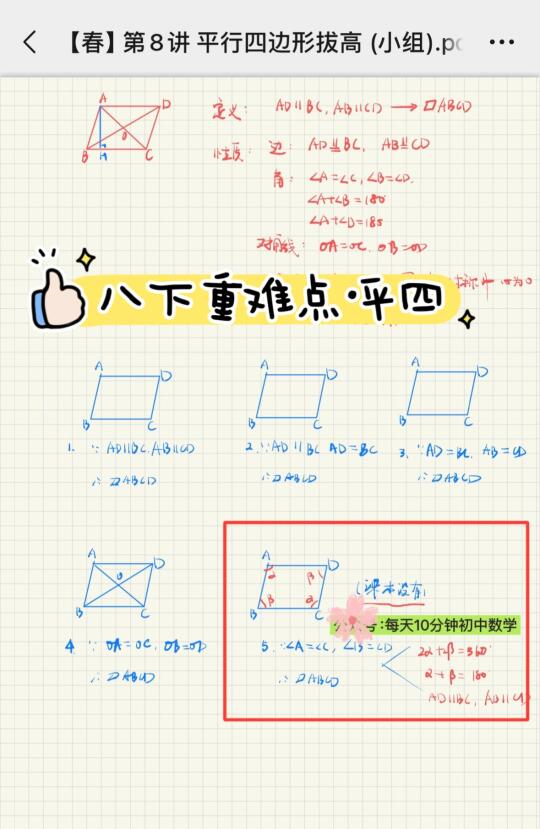 【春】第8讲 平行四边形拔高 (小组).pd
A D
O
B H C
定义: AD∥BC, AB∥CD → ▱ABCD
性质: 边: AD⫫BC, AB⫫CD
角: ∠A=∠C, ∠B=∠D.
∠A+∠B=180
∠A+∠D=180
对角线: OA=OC, OB=OD
八下重难点·平四
A D
B C
A D
B C
A D
B C
1. ∵ AD∥BC, AB∥CD
∴ ▱ABCD
2. ∵AD∥BC AD=BC
∴ ▱ABCD
3. ∵AD=BC, AB=CD
∴ ▱ABCD
A D
O
B C
4. ∵ OA=OC, OB=OD
∴ ▱ABCD
A D
α β
β α
B C
(课本没有)
号:每天10分钟初中数学
5. ∵∠A=∠C, ∠B=∠D
∴ ▱ABCD
2α+2β=360°
α+β=180
AD∥BC, AB∥CD